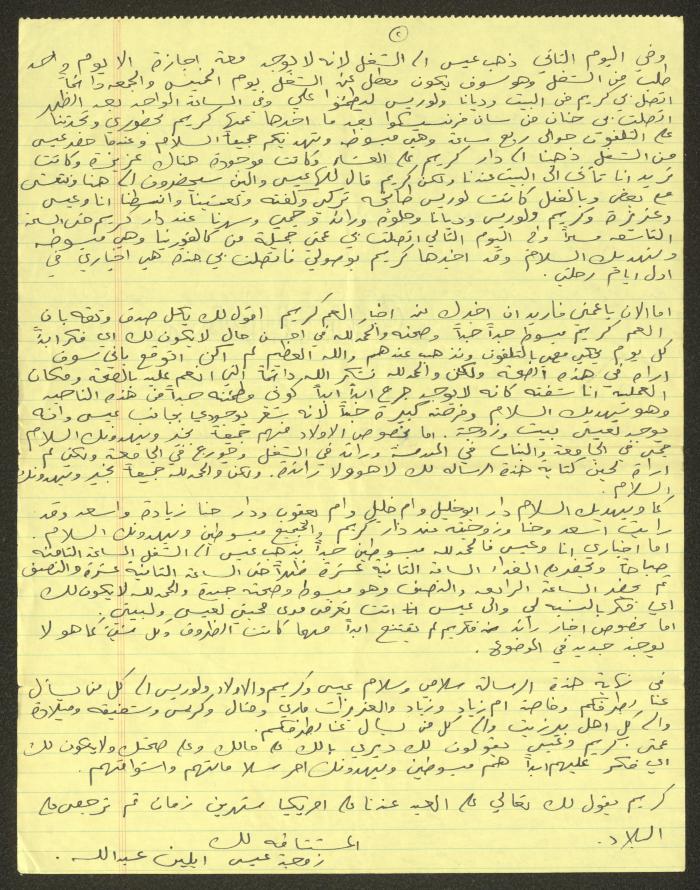 ٢
وفي اليوم الثاني ذهب عيس الى الشغل لانه لا يوجد معه اجازة الا يوم واحد
طلب من الشغل وهو سوف يكون معطل عن الشغل يوم الخميس والجمعه دائماً
اتصل بي كريم من البيت وديانا ولوريس ليطمئنوا علي وفي الساعة الواحد بعد الظهر
اتصلت بي حنان من سان فرنسيسكوا بعد ما اخذها عمها كريم بحضوري وتحدثنا
على التلفون حوالى ربع ساعة وهي مبسوطه وتهديكم جميعاً السلام وعندما حضر عيسى
من الشغل ذهبنا الى دار كريم على العشاء وكانت موجودة هناك عزيزة وكانت
تريد ان تأتي الى البيت عندنا ولكن كريم قال لها عيسى والين سيحضرون الى هنا ونتعشى
مع بعض وبالفعل كانت لوريس طابخه تركي ولفته وتعشينا وانبسطنا انا وعيس
وعزيزة وكريم ولوريس وديانا وجلوه ورائد وجمي وسهرنا عند دار كريم حتى الساعة
التاسعه مساءً وفي اليوم الثاني اتصلت بي عمتي جميلة من كالفورنيا وهي مبسوطه
وتهديك السلام وقد اخبرها كريم بوصولي فاتصلت بي هذه هي اخباري في
اول ايام رحلتي .
اما الان يا عمتي فاريد ان اخبرك عن اخبار العم كريم اقول لك بكل صدق وثقه بان
العم كريم مبسوط جداً جداً وصحته والحمد لله في احسن حال لا يكون لك اي فكر ابداً
كل يوم يحكي معي بالتلفون ونذهب عندهم والله العظيم لم اكن اتوقع باني سوف
اراه في هذه الصحة ولكن والحمد لله نشكر الله دائماً التي انعم عليه بالصحة ومكان
العملية انا شفته كانه لا يوجد جرح ابداً ابداً كوني مطمئنه جداً من هذه الناحيه
وهو يهديك السلام وفرحته كبيرة جداً لانه شعر بوجودي بجانب عيس وانه
يوجد لعيس بيت وزوجة . اما بخصوص الاولاد فهم جميعاً بخير ويهدونك السلام
جمي في الجامعة والبنات في المدرسة ورائد في الشغل وجورج في الجامعة ولكن لم
اراة لحين كتابة هذه الرسالة لك لا هو ولا تراندة . ولكن والحمد لله جميعاً بخير ويهدونك
السلام .
كما ويهديك السلام دار ابو خليل وام خليل وام يعقوب ودار حنا زيادة واسعد وقد
رايت اسعد وحنا وزوجته عند دار كريم والجميع مبسوطين ويهدونك السلام .
اما اخباري انا وعيس فالحمد لله مبسوطين جداً يذهب عيس الى الشغل الساعة الثامنة
صباحاً ويحضر على الغداء الساعة الثانية عشرة ظهراً حتى الساعة الثانية عشرة والنصف
ثم يحضر الساعة الرابعه والنصف وهو مبسوط وصحته جيدة والحمد لله لا يكون لك
اي فكر بالنسبه لي والى عيس انت تعرفي مدى محبتي لعيس ولبيتي .
اما بخصوص اخبار رائد فكريم لم يقتنع ابداً مهما كانت الظروف وكل شيئ كما هو لا
يوجد جديد في الموضوع .
في نهاية هذه الرسالة سلامي وسلام عيس وكريم والاولاد ولوريس الى كل من يسأل
عنا بطرفكم وخاصة ام زياد وزياد والعزيزات ماري ومنال وكرمس وشفيقه وميلادة
والى كل اهل بيرزيت والى كل من يسأل عنا بطرفكم .
عمتي كريم وعيس يقولون لك ديري بالك على حالك وعلى صحتك ولا يكون لك
اي فكر عليهم ابداً هم مبسوطين ويهدونك احر سلاماتهم واشواقهم .
كريم يقول لك تعالي على العيد عندنا على امريكيا شهرين زمان ثم ترجعي على
البلاد .
المشتاقه لك
زوجة عيس ايلين عبدالله .